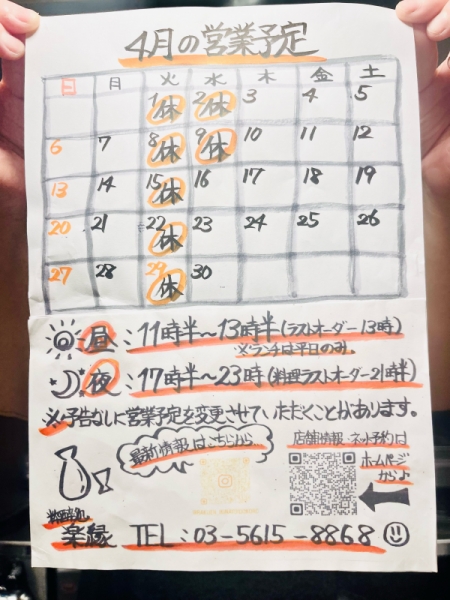 4月の営業予定
日 月 火 水 木 金 土
1休 2休 3 4 5
6 7 8休 9休 10 11 12
13 14 15休 16 17 18 19
20 21 22休 23 24 25 26
27 28 29休 30
昼:11時半〜13時半(ラストオーダー13時)
※ランチは平日のみ。
夜:17時半〜23時(料理ラストオーダー21時半)
※予告なしに営業予定を変更させていただくことがあります。
最新情報はこちらから…
店舗情報・ネット予約は
ホームページ
から♪
楽縁 TEL:03-5615-8868